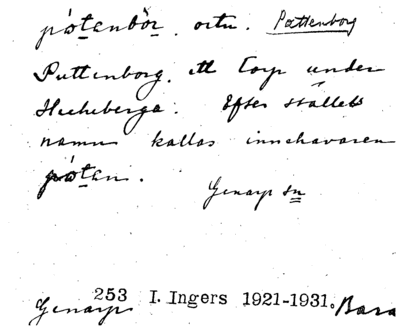 pö̀tanbör, ortn. Puttenborg
Puttenborg, ett torp under
Heckeberga. Efter ställets
namn kallas innehavaren
pö̀tan.
Genarp sn
253 I. Ingers 1921-1931.
Genarp Bara